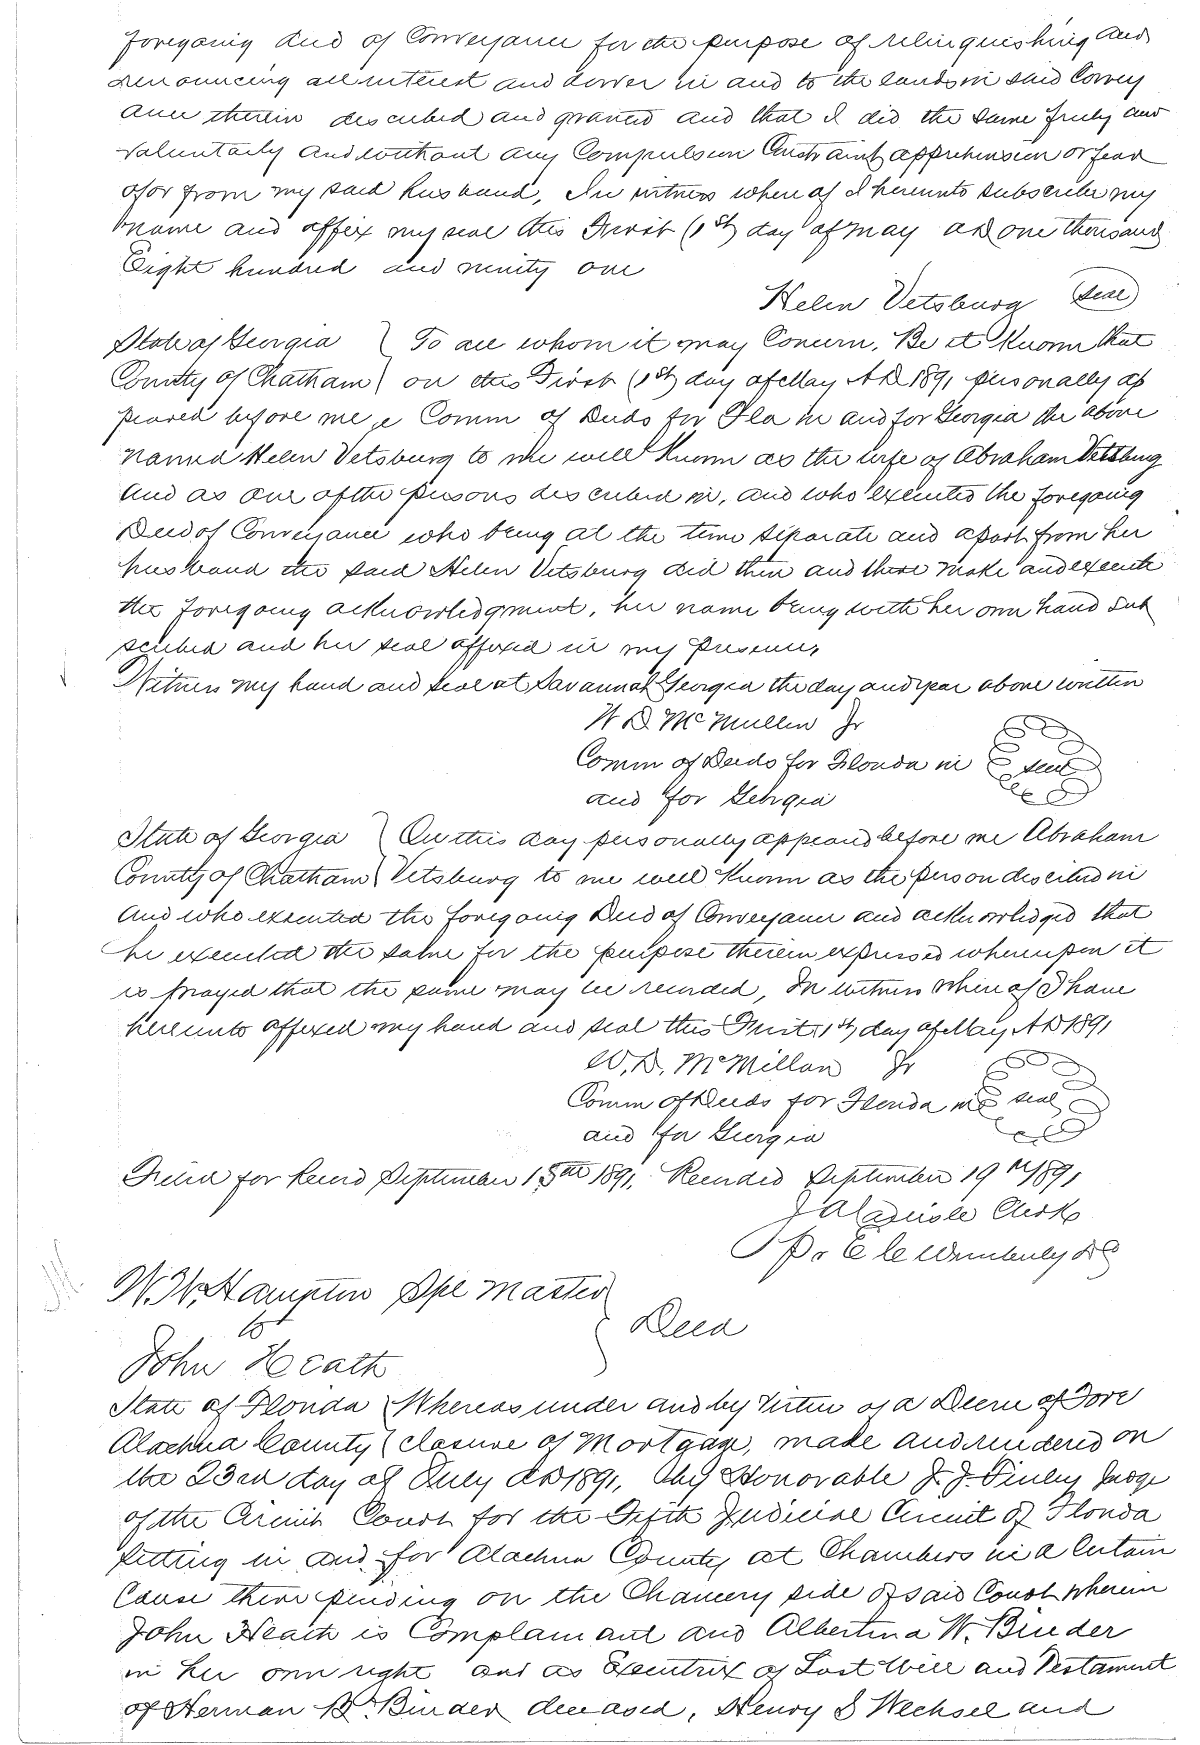 foregoing deed of Conveyance for the purpose of relinquishing and
renouncing all interest and dower in and to the lands in said Convey
ance therein described and granted and that I did the same freely and
voluntarily and without any Compulsion Constraint apprehension or fear
of or from my said husband, In witness where of I hereunto subscribe my
name and affix my seal this First (1st) day of May AD one thousand
Eight hundred and ninity one
Helen Vetsburg (seal)
State of Georgia } To all whom it may Concern, Be it Known that
County of Chatham } on this First (1st) day of May AD 1891 personally ap
peared before me a Comm of Deeds for Fla in and for Georgia the above
named Helen Vetsburg to me well Known as the wife of Abraham Vetsburg
and as one of the persons described in, and who executed the foregoing
Deed of Conveyance who being at the time separate and apart from her
husband the said Helen Vetsburg did then and there make and execute
the foregoing acknowledgment, her name being with her own hand sub
scribed and her seal affixed in my presence,
Witness my hand and seal at Savannah Georgia the day and year above written
W D McMullen Jr
Comm of Deeds for Florida in seal
and for Georgia
State of Georgia } On this day personally appeared before me Abraham
County of Chatham } Vetsburg to me well Known as the person described in
and who executed the foregoing Deed of Conveyance and acknowledged that
he executed the same for the purpose therein expressed whereupon it
is prayed that the same may be recorded, In witness where of I have
hereunto affixed my hand and seal this First 1st day of May AD 1891
W. D. McMillan Jr
Comm of Deeds for Florida in seal
and for Georgia
Filed for Record September 15th 1891, Recorded September 19th 1891
J A Carlisle Clerk
Pr E C Wimberly DC
W. W. Hampton Spl Master
to } Deed
John Heath
State of Florida } Whereas under and by Virtue of a Decree of Fore
Alachua County } closure of Mortgage, made and rendered on
the 23rd day of July AD 1891, by Honorable J. J. Finley Judge
of the Circuit Court for the Fifth Judicial Circuit of Florida
sitting in and for Alachua County at Chambers in a Certain
Cause there pending on the Chancery side of said Court wherein
John Heath is Complainant and Albertina W. Binder
in her own right and as Executrix of Last Will and Testament
of Herman B. Binder deceased, Henry S Wechsel and